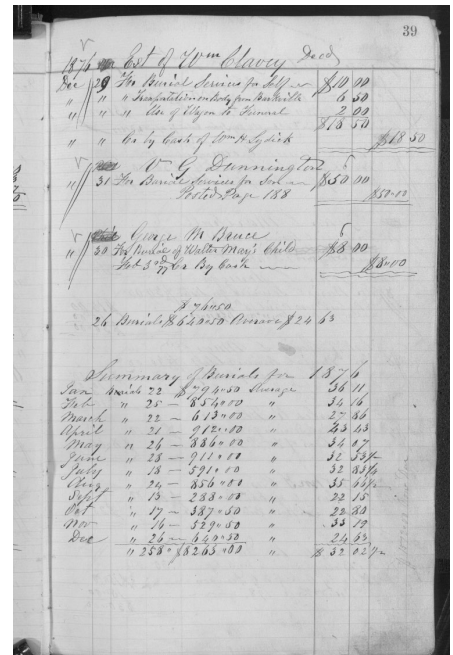 39
1876 Est of Wm Clavey Decd
Dec 29 For Burial Services for Self $10 00
" " " Transportation on Body from 6 50
" " " Use of Wagon to Funeral 2 00
$18 50
" " Cr by Cash of Wm H Lydick $18 50
V G Dunnington
" 31 For Burial Services for Son $50 00
Posted Page 188 $50.00
George M Bruce
" 30 For Burial of Walter May's Child $8 00
Feb 3rd 77 Cr By Cash $8.00
$76.50
26 Burials $640.50 $24 63
Summary of Burials for 1876
Jan Burials 22 $794.50 Average 36 11
Feb " 25 — 854.00 " 34 16
March " 22 — 613.00 " 27 86
April " 21 — 912.00 " 43 43
May " 26 — 886.00 " 34 07
June " 28 — 911.00 " 32
July " 18 — 591.00 " 32
Aug " 24 — 856.00 " 35
Sept " 13 — 288.00 " 22 15
Oct " 17 — 387.50 " 22 80
Nov " 16 — 529.50 " 33 19
Dec " 26 — 640.50 24 63
" 258 " $8263.00 " $ 32 02